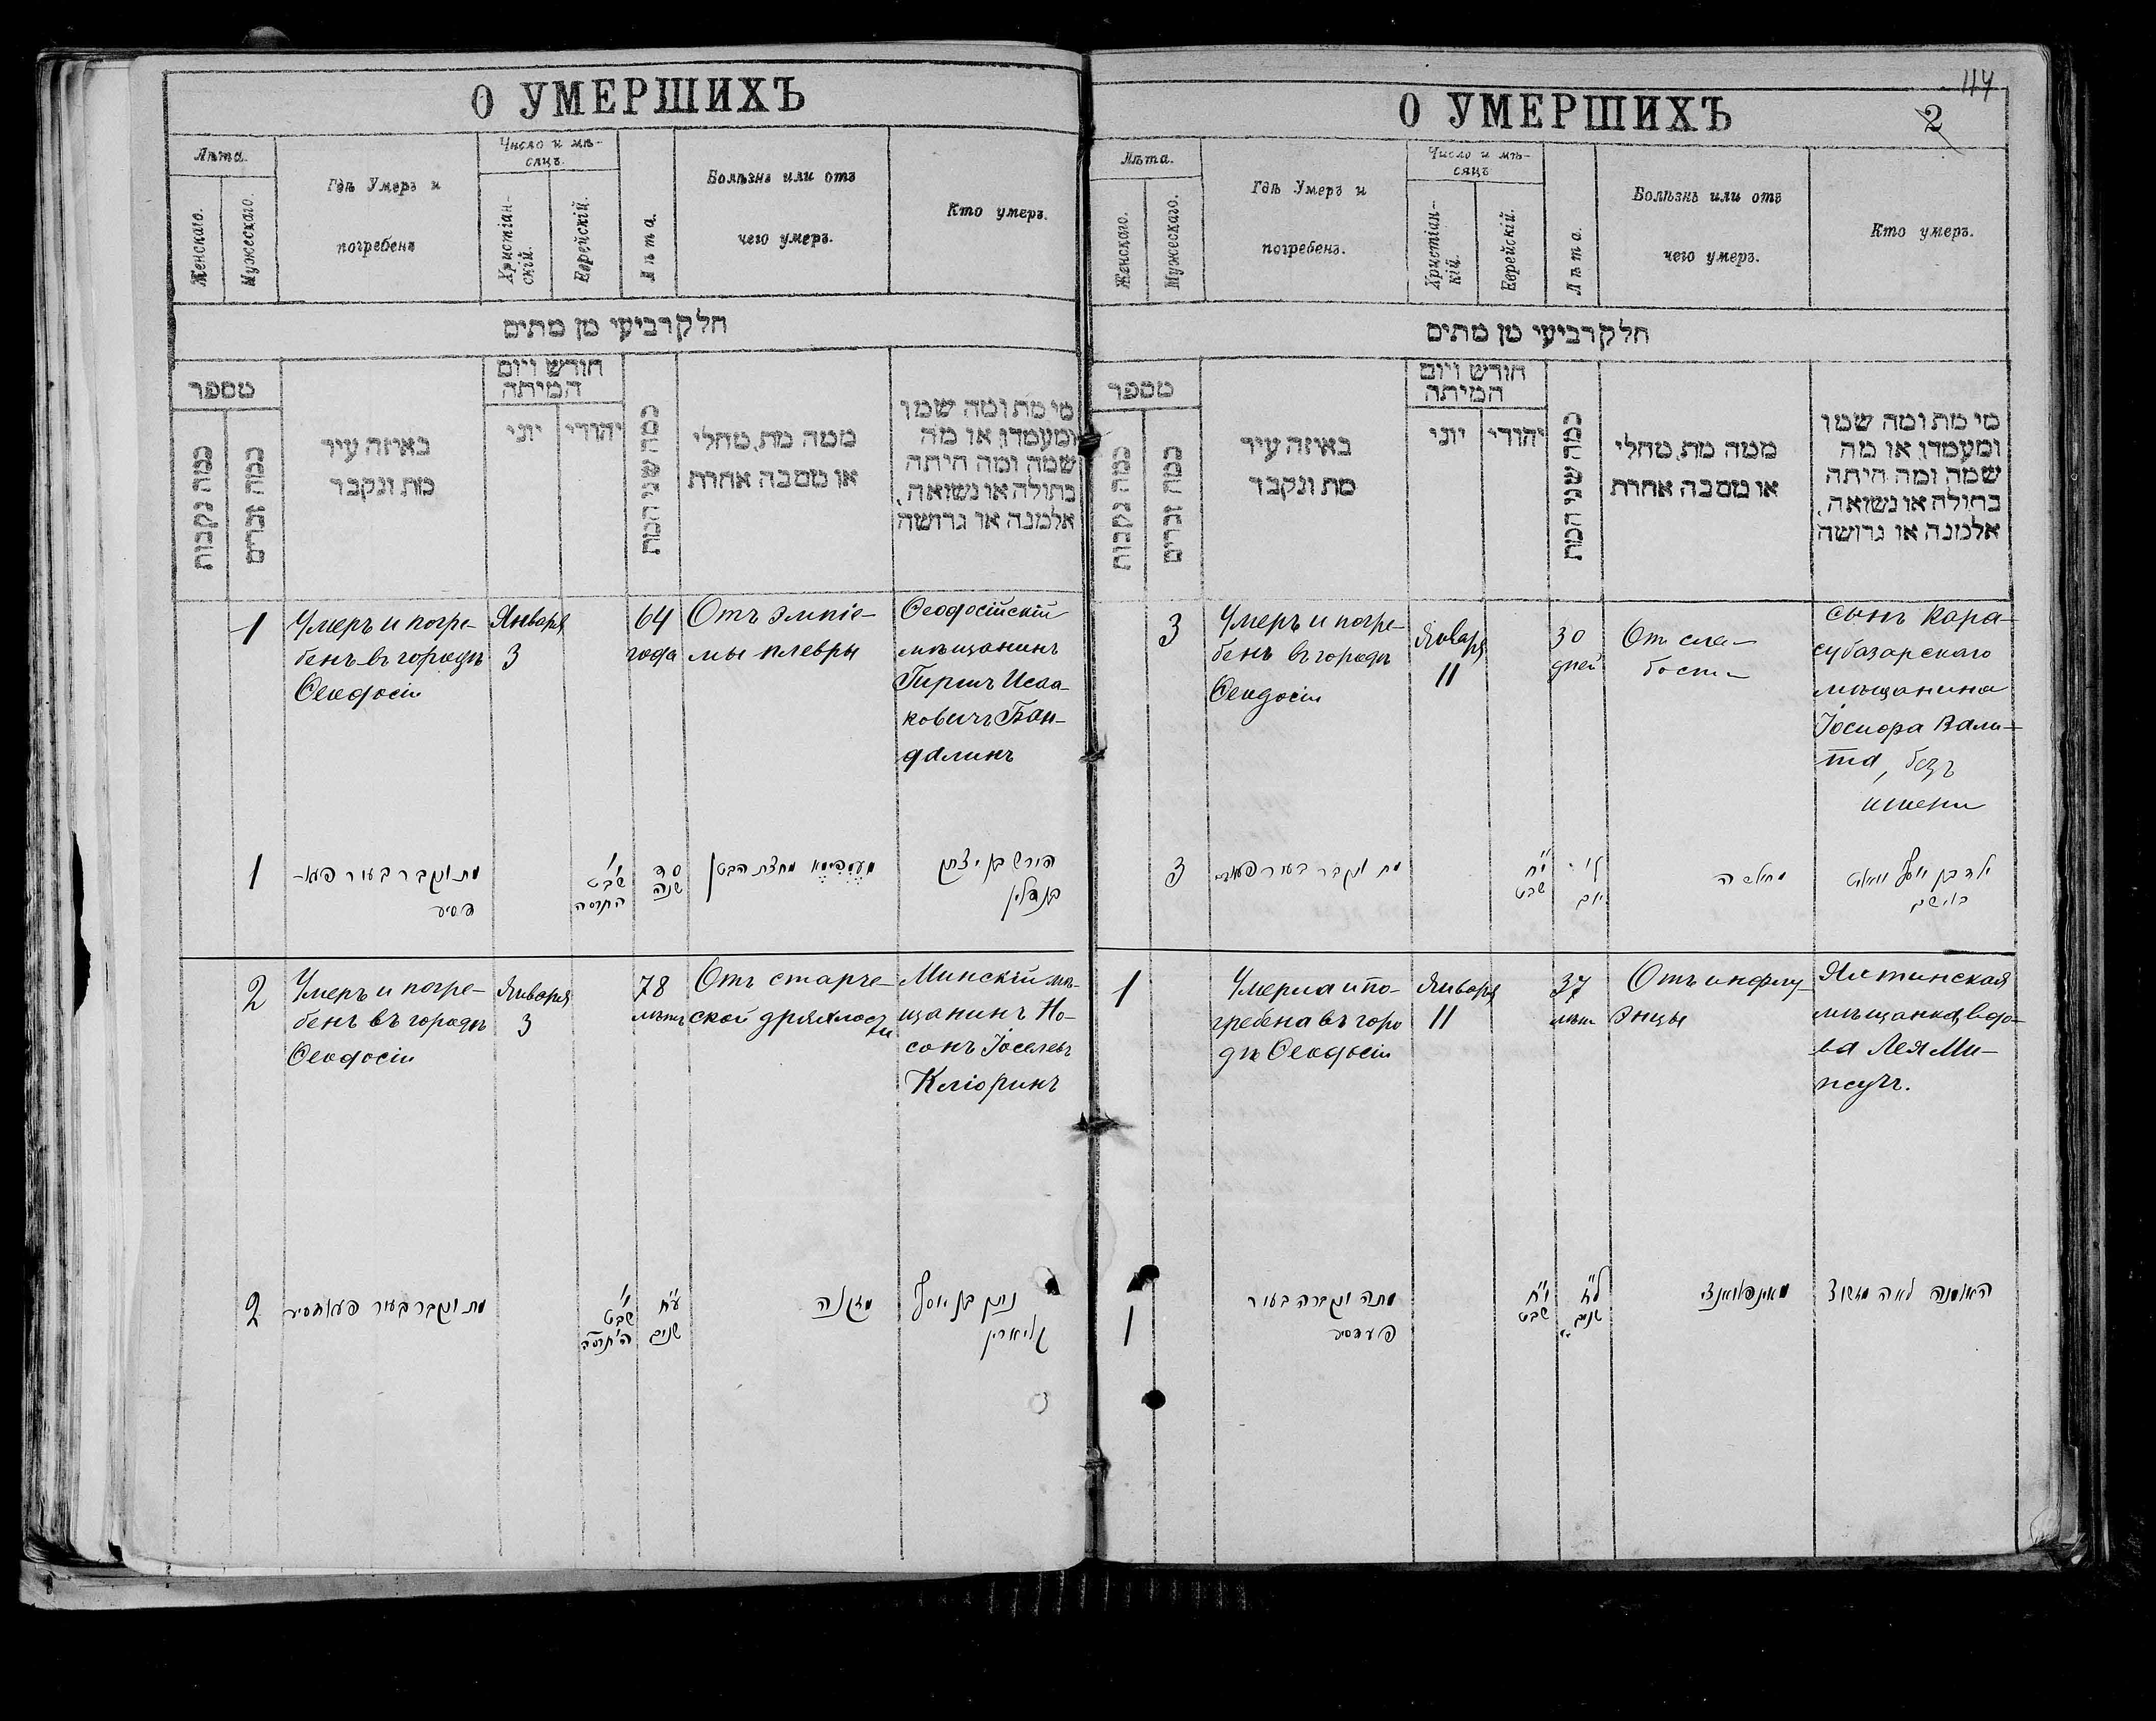 О УМЕРШИХЪ
Лѣта.
Женскаго.
Мужескаго.
Гдѣ Умеръ и
погребенъ
Число и мѣ-
сяцъ.
Христіан-
скій.
Еврейскій.
Лѣта.
Болѣзнь или отъ
чего умеръ.
Кто умеръ.
חלק רביעי מן מתים
מספר
כמה נקבות
כמה זכרים
באיזה עיר
מת ונקבר
חודש ויום
המיתה
יוני
יהודי
כמה שני המת
ממה מת, מחלי
או מסבה אחרת
מי מת ומה שמו
ומעמדו, או מה
שמה ומה היתה
בתולה או נשואה,
אלמנה או גרושה
1
Умеръ и погре-
бенъ въ городѣ
Ѳеодосіи
Января
3
64
года
Отъ эмпіе-
мы плевры
Ѳеодосійскій
мѣщанинъ
Гиршъ Исаа-
ковичъ Бан-
далинъ
1
מת ונקבר בעיר פעא-
דסיע
י'
שבט
התרסה
סד
שנה
הירש בן יצחק
בנדלין
2
Умеръ и погре-
бенъ въ городѣ
Ѳеодосіи
Января
3
78
лѣтъ
Отъ старче-
ской дряхлости
Минскій мѣ-
щанинъ Но-
сонъ Іоселевъ
Кліоринъ
2
מת ונקבר בעיר פעאדסיע
י'
שבט
ה'תרסה
ע"ח
שנים
מזקנה
נתן בן יוסף
קליארין
О УМЕРШИХЪ
114
2
Лѣта.
Женскаго.
Мужескаго.
Гдѣ Умеръ и
погребенъ.
Число и мѣ-
сяцъ
Христіан-
кій.
Еврейскій.
Лѣта.
Болѣзнь или отъ
чего умеръ.
Кто умеръ.
חלק רביעי מן מתים
מספר
כמה נקבות
כמה זכרים
באיזה עיר
מת ונקבר
חודש ויום
המיתה
יוני
יהודי
כמה שני המת
ממה מת, מחלי
או מסבה אחרת
מי מת ומה שמו
ומעמדו, או מה
שמה ומה היתה
בתולה או נשואה,
אלמנה או גרושה
3
Умеръ и погре-
бенъ въ городѣ
Ѳеодосіи
Января
11
30
дней
От сла-
бости
сынъ Кара-
субазарскаго
мѣщанина
Іосифа Вали-
та, безъ
имени
3
מת ונקבר בעיר
י"ח
שבט
ל'
יום
מחלשה
ילד בן יוסף
בלי שם
1
Умерла и по-
гребена въ горо
дѣ Ѳеодосіи
Января
11
37
лѣтъ
Отъ инфлу-
энцы
Ялтинская
мѣщанка, вдо-
ва Лея Ми-
псучъ.
1
מתה ונקברה בעיר
פעדסיע
י"ח
שבט
שנים
מאינפלואנצי
האלמנה לאה